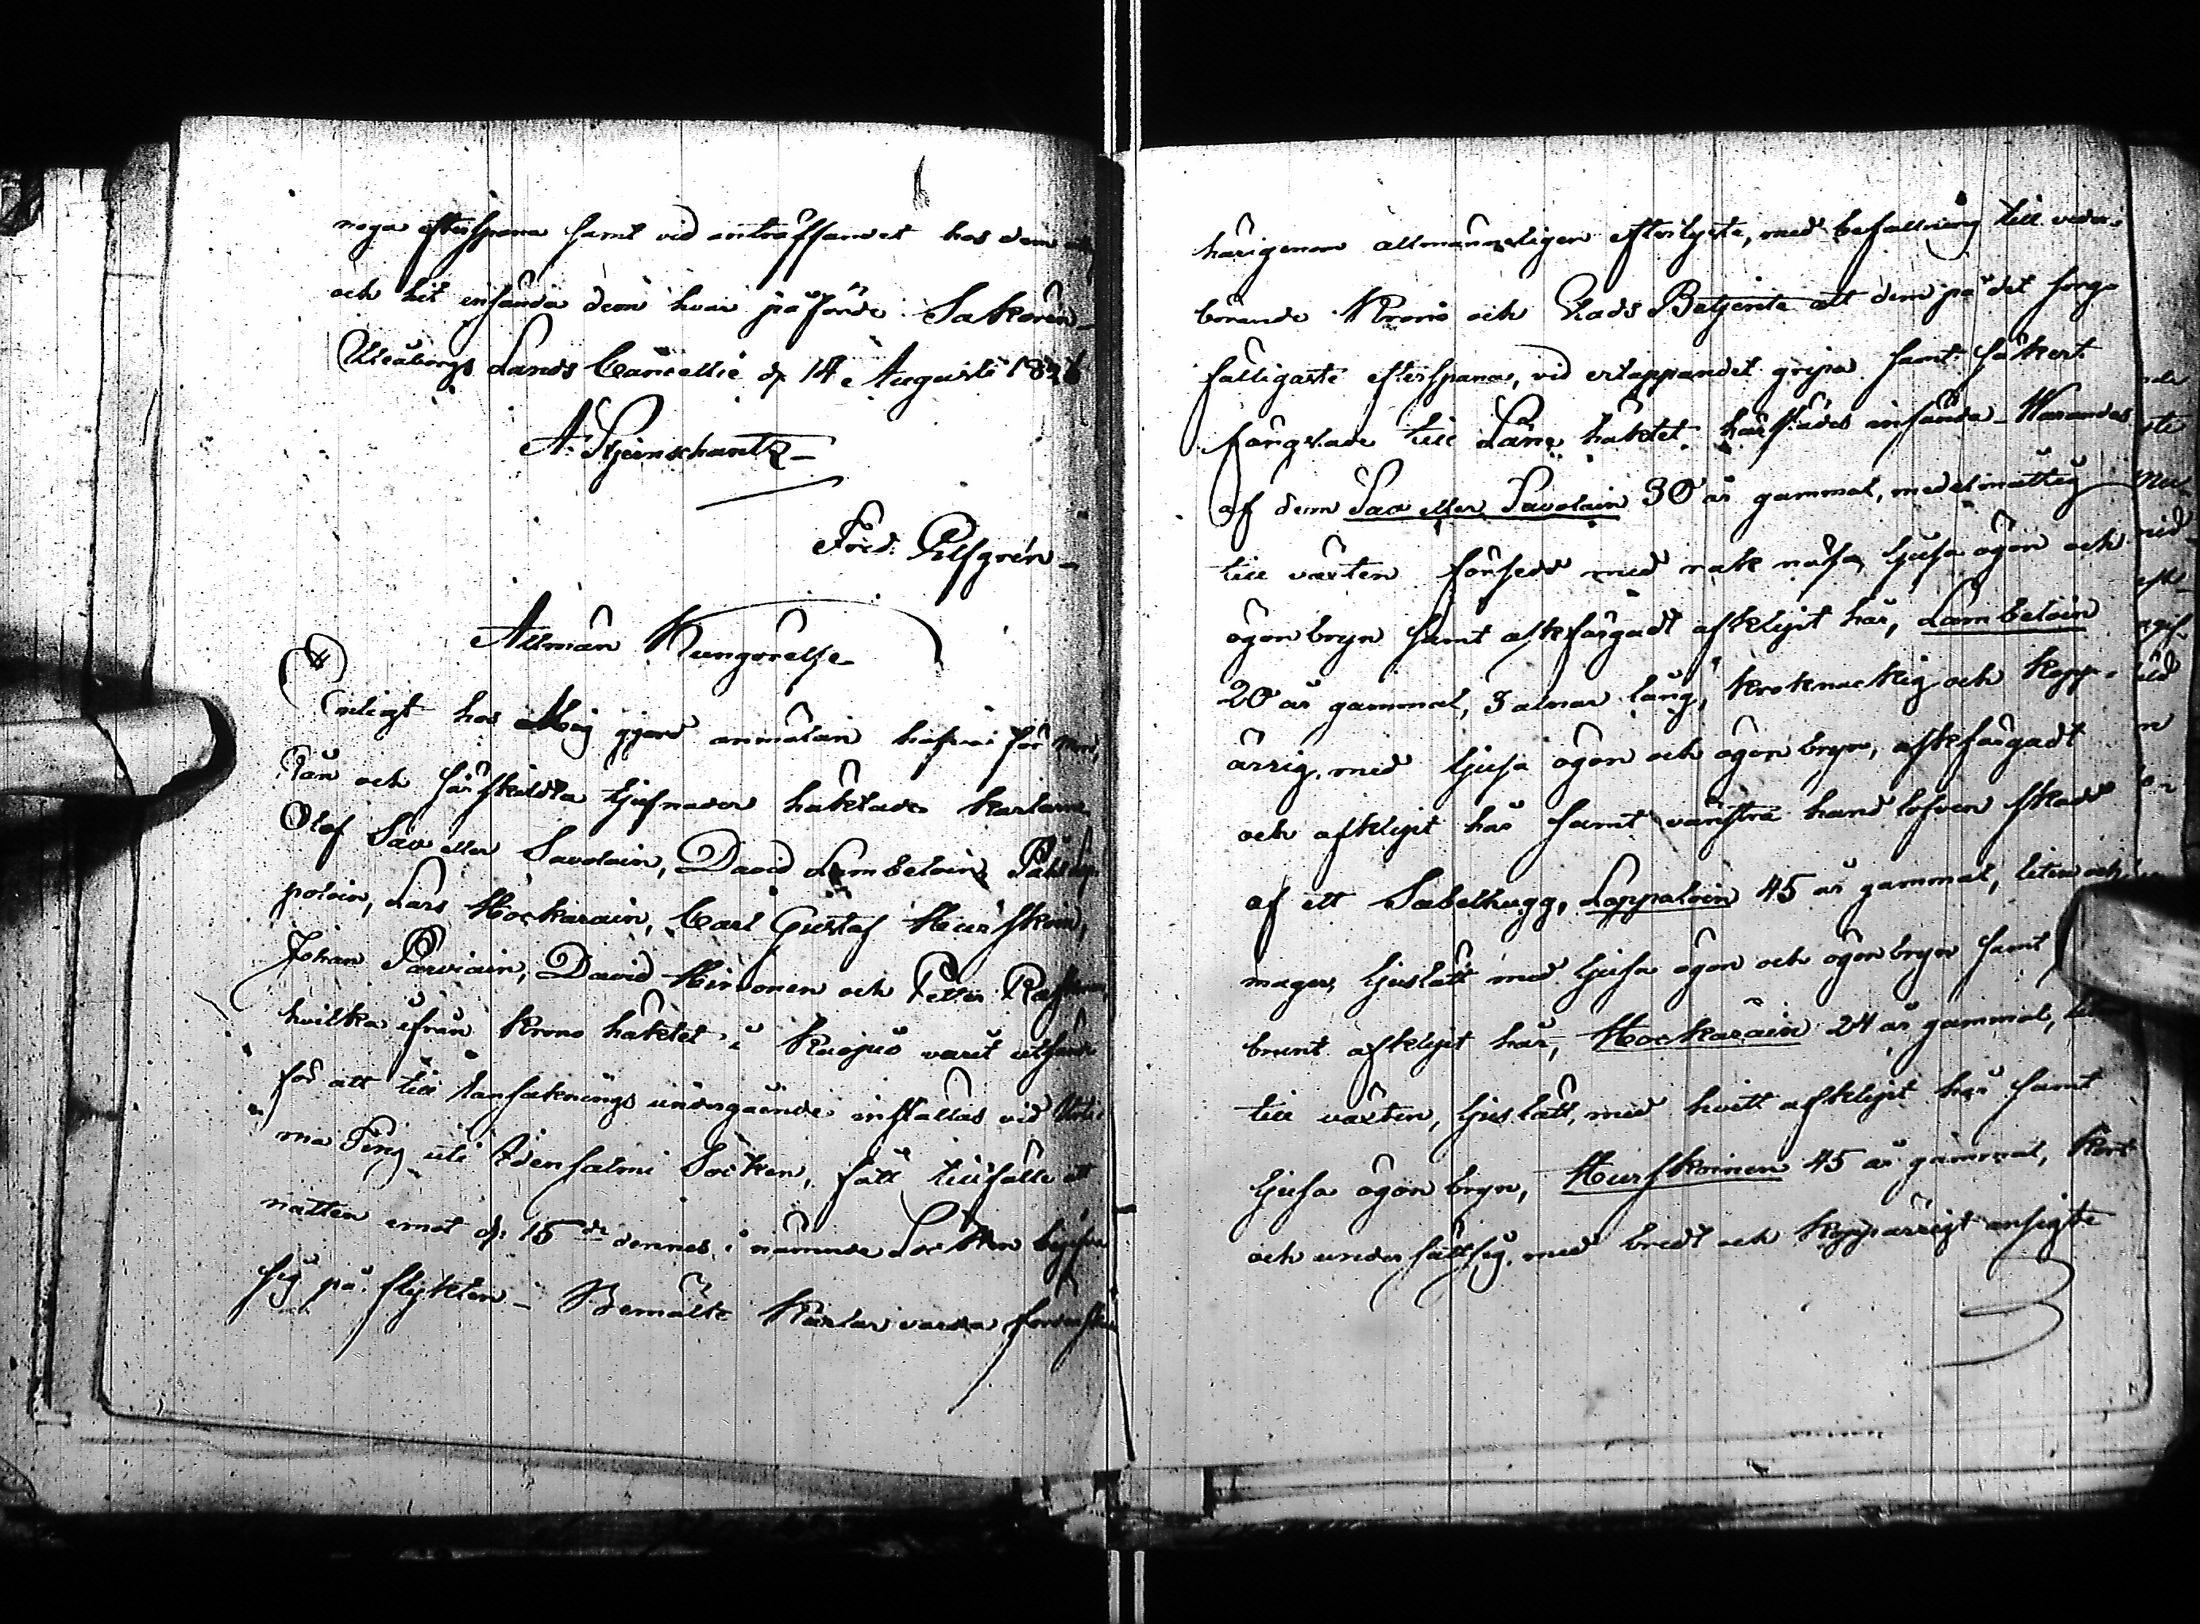 noga efterspana samt vid anträffandet hos dem
och hit insända dem hvar påförde Sakören
Uleåborgs Lands Cancellie d. 14 Augusti 1826
A. Stjernschantz
Fred. Elfgrén
Allmän Kungörelse
Enligt hos Mig gjord anmälan hafva för
Rån och särskildta tjufnader häktade karlarne
Olof Sav eller Savolain, David Lambeloin,
poloin, Lars Hockarain, Carl Gustaf Hurskoin,
Johan Parviain, David Hirvonen och Petter
hvilka ifrån Krono häktet i Kuopio varit utsände
för att till Ransaknings undergående inställas vid
ma Ting uti Idensalmi Socken, fått tillfälle att
natten emot d. 15de dennes i nämnde Socken begifva
sig på flykten – Bemälte Karlar varda fördenskull
härigenom allmänneligen efterlyste, med befallning till veder-
börande Krono och Stads Betjente att dem på det sorg-
fälligaste efterspana, vid ertappandet gripa samt säkert
fängslade till Läns häktet härstädes insända – Varandes
af dem Sav eller Savolain 30 år gammal, medelmåttig
till växten försedd med rak näsa, ljusa ögon och
ögonbryn samt askfärgadt afklipt hår, Lambeloin
20 år gammal, 3 alnar lång, kroknackig och kopp-
ärrig, med ljusa ögon och ögonbryn, askfärgadt
och afklipt hår samt vänstra hand lofven skadd
af ett Sabelhugg, Loppoloin 45 år gammal, liten och
mager, ljuslätt med ljusa ögon och ögonbryn samt
brunt afklipt hår, Hockarain 24 år gammal, liten
till växten, ljuslätt, med hvitt afklipt hår samt
ljusa ögonbryn, Hurskoinen 45 år gammal, kort
och undersättsig, med bredt och kopparrigt ansigte